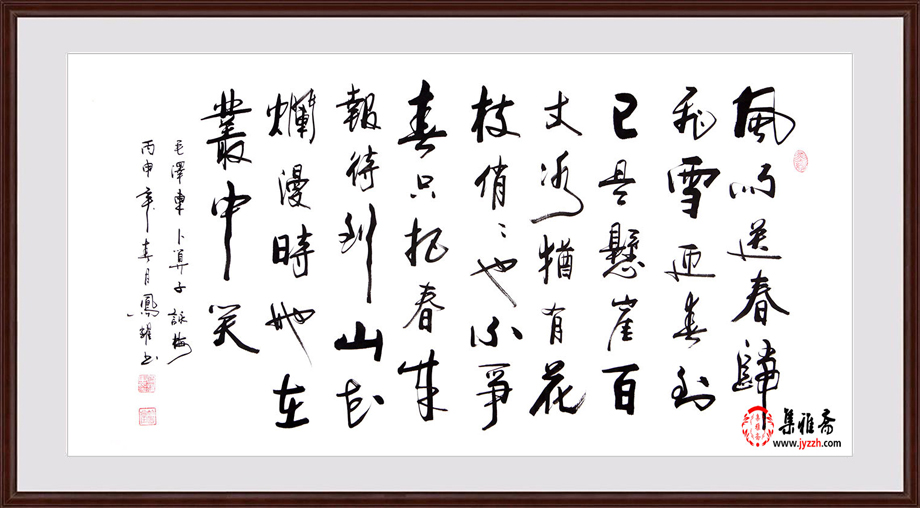 風雨送春歸
飛雪迎春到
已是懸崖百
丈冰猶有花
枝俏〻也不爭
春只把春來
報待到山花
爛漫時她在
叢中笑
毛澤東卜算子詠梅
丙申年春月鳳书
集雅斋
www.jyzzh.com